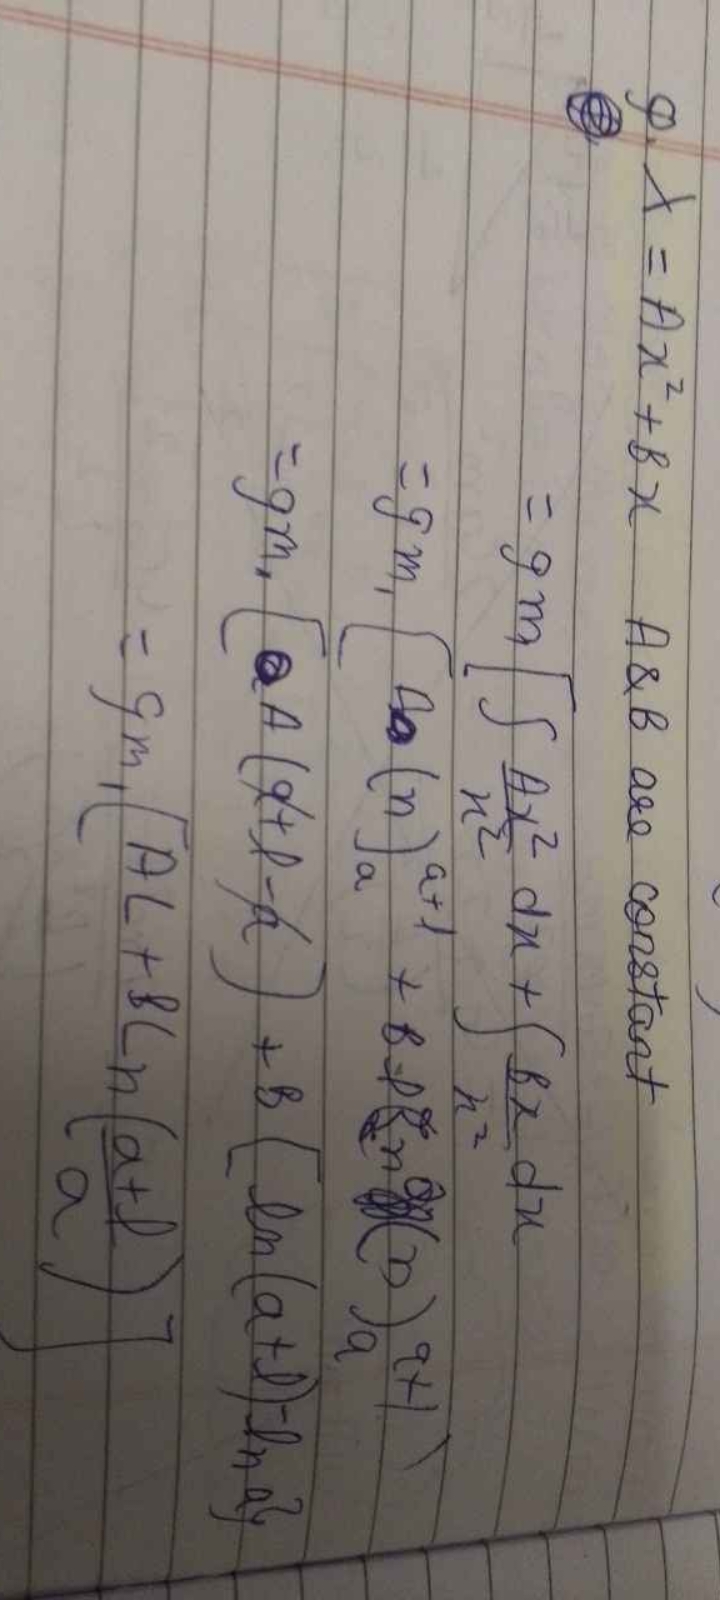 Q. λ = Ax² + Bx A & B are constant
= g m₁ [ ∫ Ax²/x² dx + ∫ Bx/x² dx
= g m₁ [ A (x)ₐᵃ⁺ˡ + B ln (x)ₐᵃ⁺ˡ )
= g m₁ [ A (a + l - a) + B [ ln (a+l) - ln a }
= g m₁ [ AL + B Ln ( a+l / a ) ]